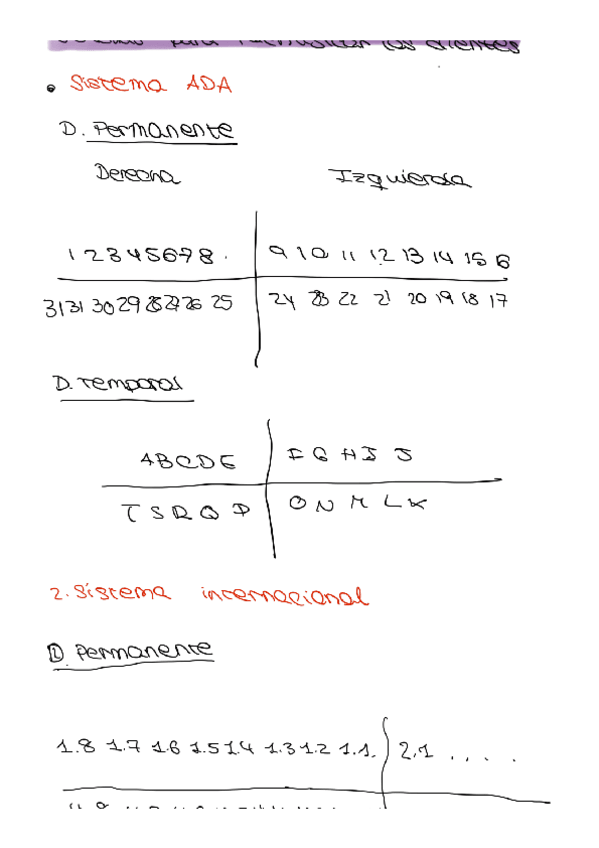 para los dientes
• Sistema ADA
D. Permanente
Derecha Izquierda
1 2 3 4 5 6 7 8 . 9 10 11 12 13 14 15 6
31 31 30 29 28 27 26 25 24 23 22 21 20 19 18 17
D. Temporal
A B C D E F G H I J
T S R Q P O N M L K
2. Sistema internacional
D. Permanente
1.8 1.7 1.6 1.5 1.4 1.3 1.2 1.1. 2.1 . . . .